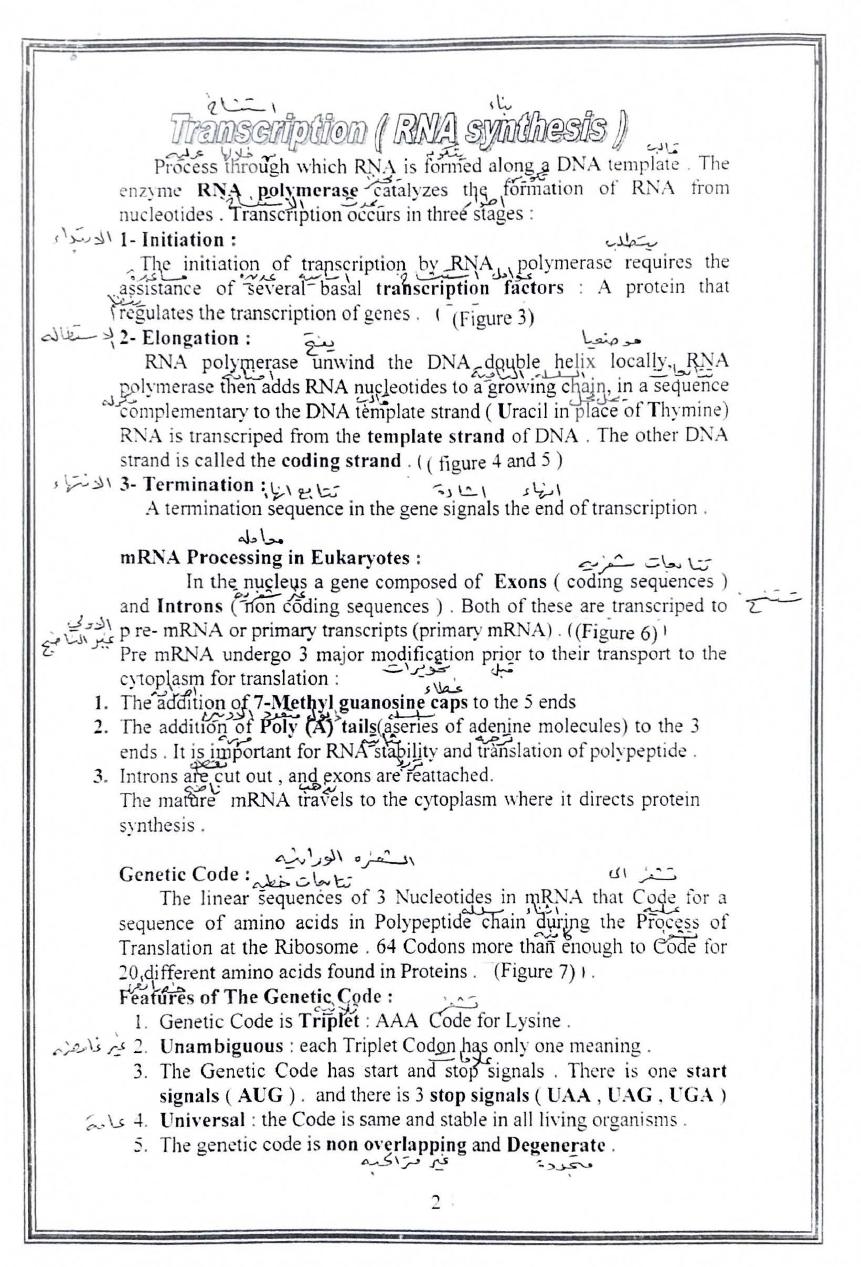 استنساخ بناء
Transcription ( RNA synthesis )
قالب
Process through which RNA is formed along a DNA template . The
enzyme RNA polymerase catalyzes the formation of RNA from
nucleotides . Transcription occurs in three stages :
الابتداء 1- Initiation : يتطلب
The initiation of transcription by RNA polymerase requires the
assistance of several basal transcription factors : A protein that
regulates the transcription of genes . ( (Figure 3)
الاستطاله 2- Elongation : يفتح موضعيا
RNA polymerase unwind the DNA double helix locally, RNA
polymerase then adds RNA nucleotides to a growing chain, in a sequence
complementary to the DNA template strand ( Uracil in place of Thymine)
RNA is transcriped from the template strand of DNA . The other DNA
strand is called the coding strand . (( figure 4 and 5 )
الانتهاء 3- Termination : تتابع انهاء اشارة انهاء
A termination sequence in the gene signals the end of transcription .
معامله
mRNA Processing in Eukaryotes : تتابعات شفريه
In the nucleus a gene composed of Exons ( coding sequences )
and Introns ( non coding sequences ) . Both of these are transcriped to تستنسخ
الاولي
غير الناضج p re- mRNA or primary transcripts (primary mRNA) . ((Figure 6) )
Pre mRNA undergo 3 major modification prior to their transport to the
تحويرات قبل
cytoplasm for translation :
غطاء
1. The addition of 7-Methyl guanosine caps to the 5 ends
2. The addition of Poly (A) tails(aseries of adenine molecules) to the 3
ends . It is important for RNA stability and translation of polypeptide .
3. Introns are cut out , and exons are reattached.
ناضج يذهب
The mature mRNA travels to the cytoplasm where it directs protein
synthesis .
الشفره الوراثيه
Genetic Code : تتابعات خطيه تشفر الى
The linear sequences of 3 Nucleotides in mRNA that Code for a
sequence of amino acids in Polypeptide chain during the Process of
Translation at the Ribosome . 64 Codons more than enough to Code for
20,different amino acids found in Proteins . (Figure 7) ) .
Features of The Genetic Code :
ثلاثيه تشفر
1. Genetic Code is Triplet : AAA Code for Lysine .
غير غامضه 2. Unambiguous : each Triplet Codon has only one meaning .
3. The Genetic Code has start and stop signals . There is one start
signals ( AUG ) . and there is 3 stop signals ( UAA , UAG , UGA )
عامة 4. Universal : the Code is same and stable in all living organisms .
5. The genetic code is non overlapping and Degenerate .
غير متراكبه
2